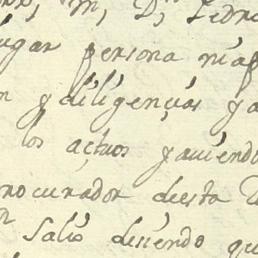 m, D, Pedro
lugar persona
n y diligençias ya
los actuos yaviendo
procurador desta
n salio diciendo qu